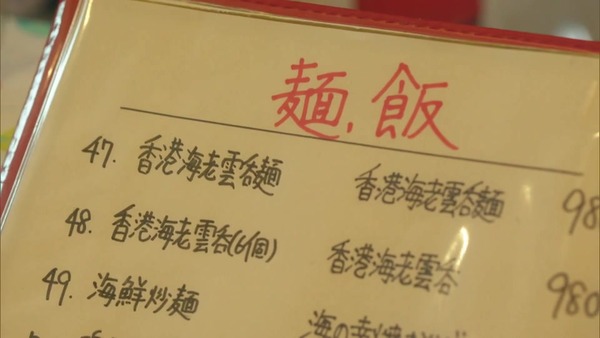 麺、飯
47. 香港海老雲呑麺 香港海老雲呑麺 98
48. 香港海老雲呑(6個) 香港海老雲呑 980
49. 海鮮炒麺 海の幸焼きそば